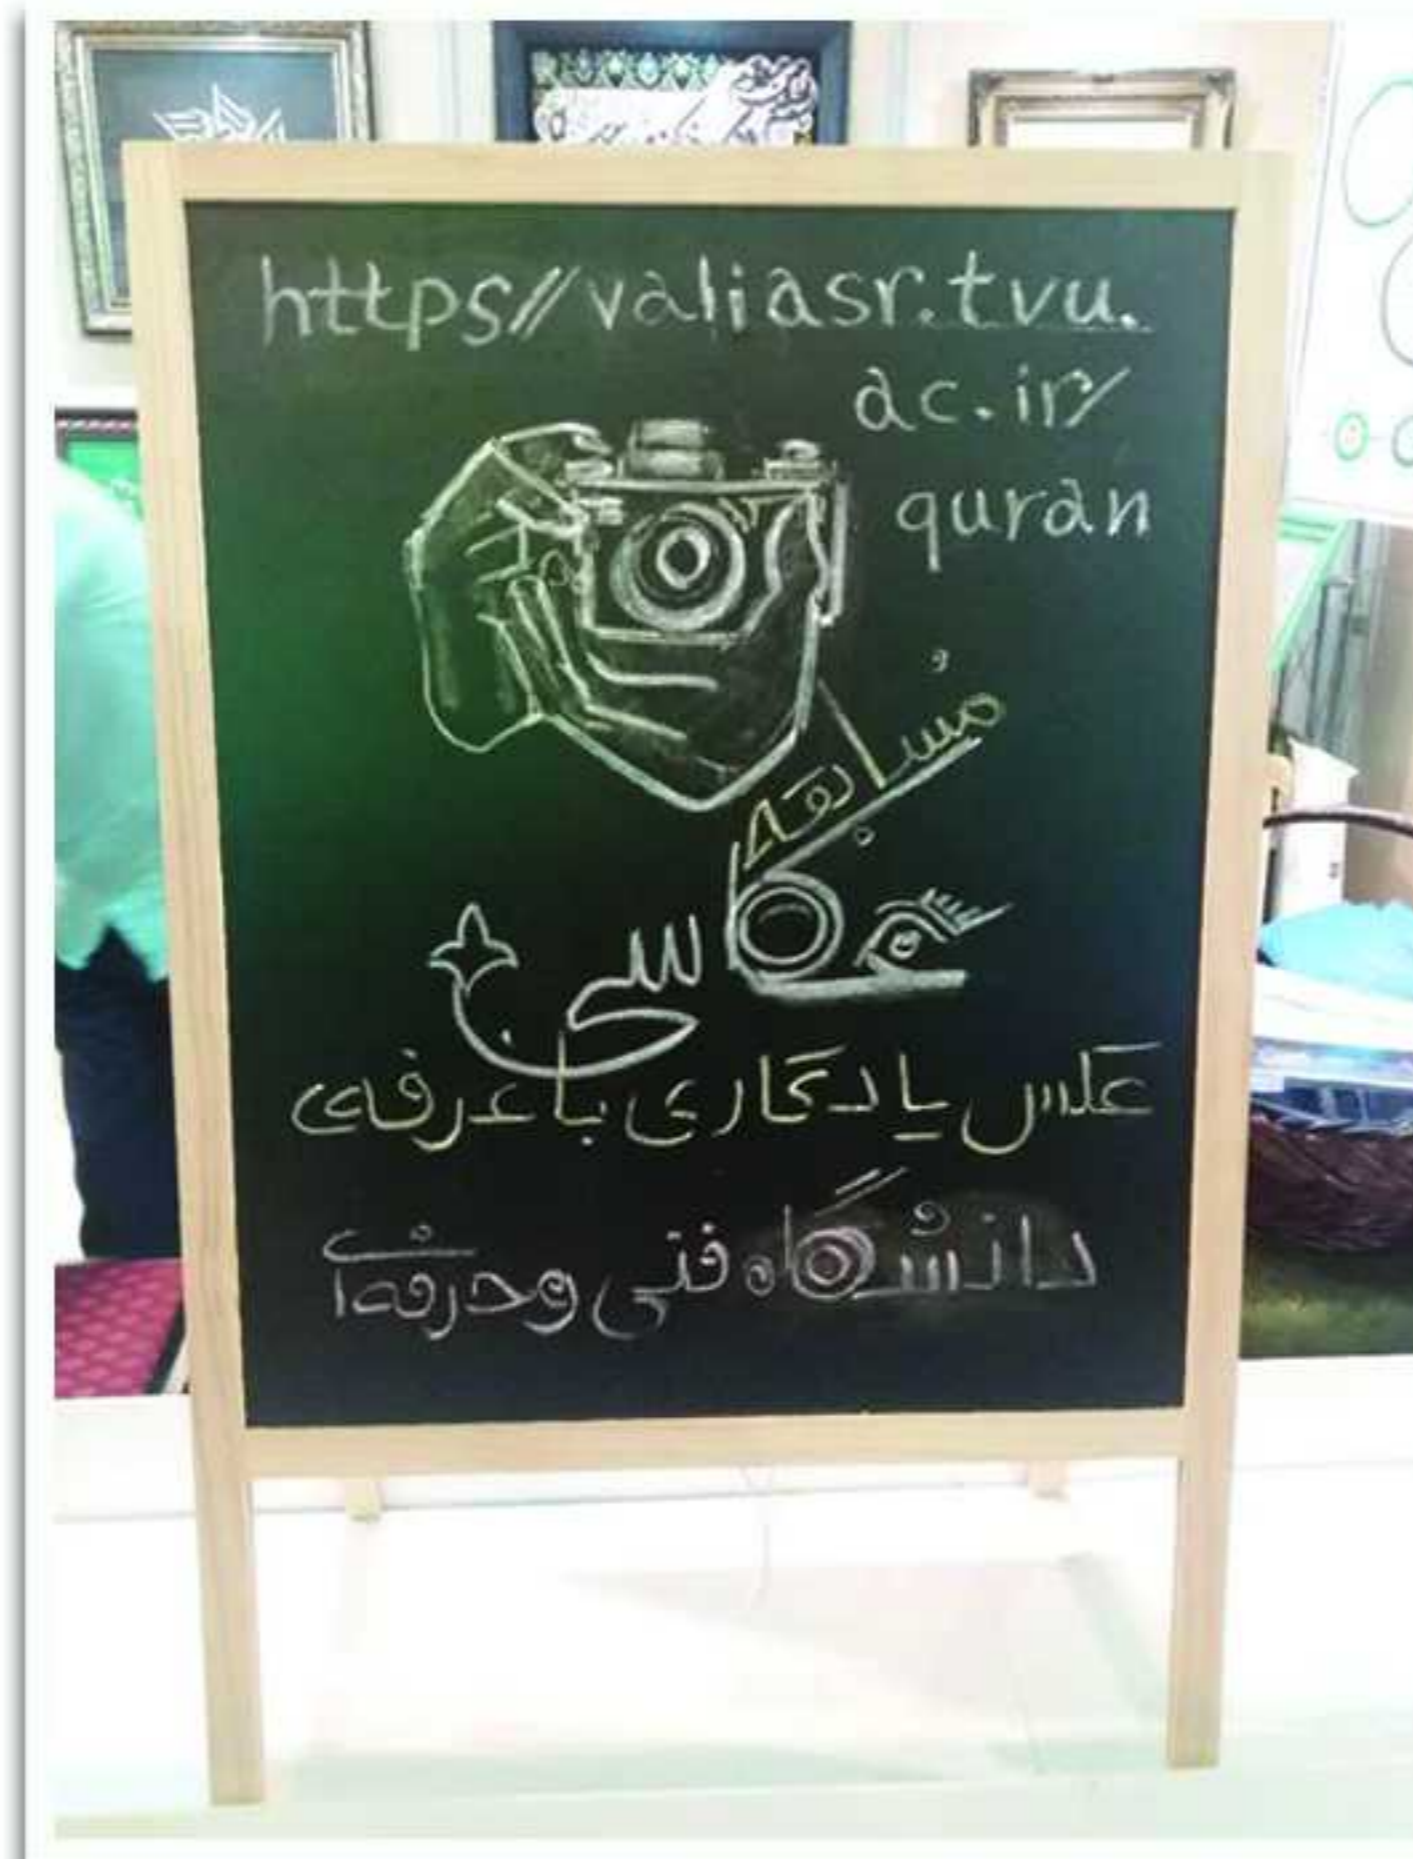 https//valiasr.tvu.
ac.ir/
quran
مسابقه
عکاسی
عکس یادگاری با غرفه‌ی
دانشگاه فنی و حرفه‌ای